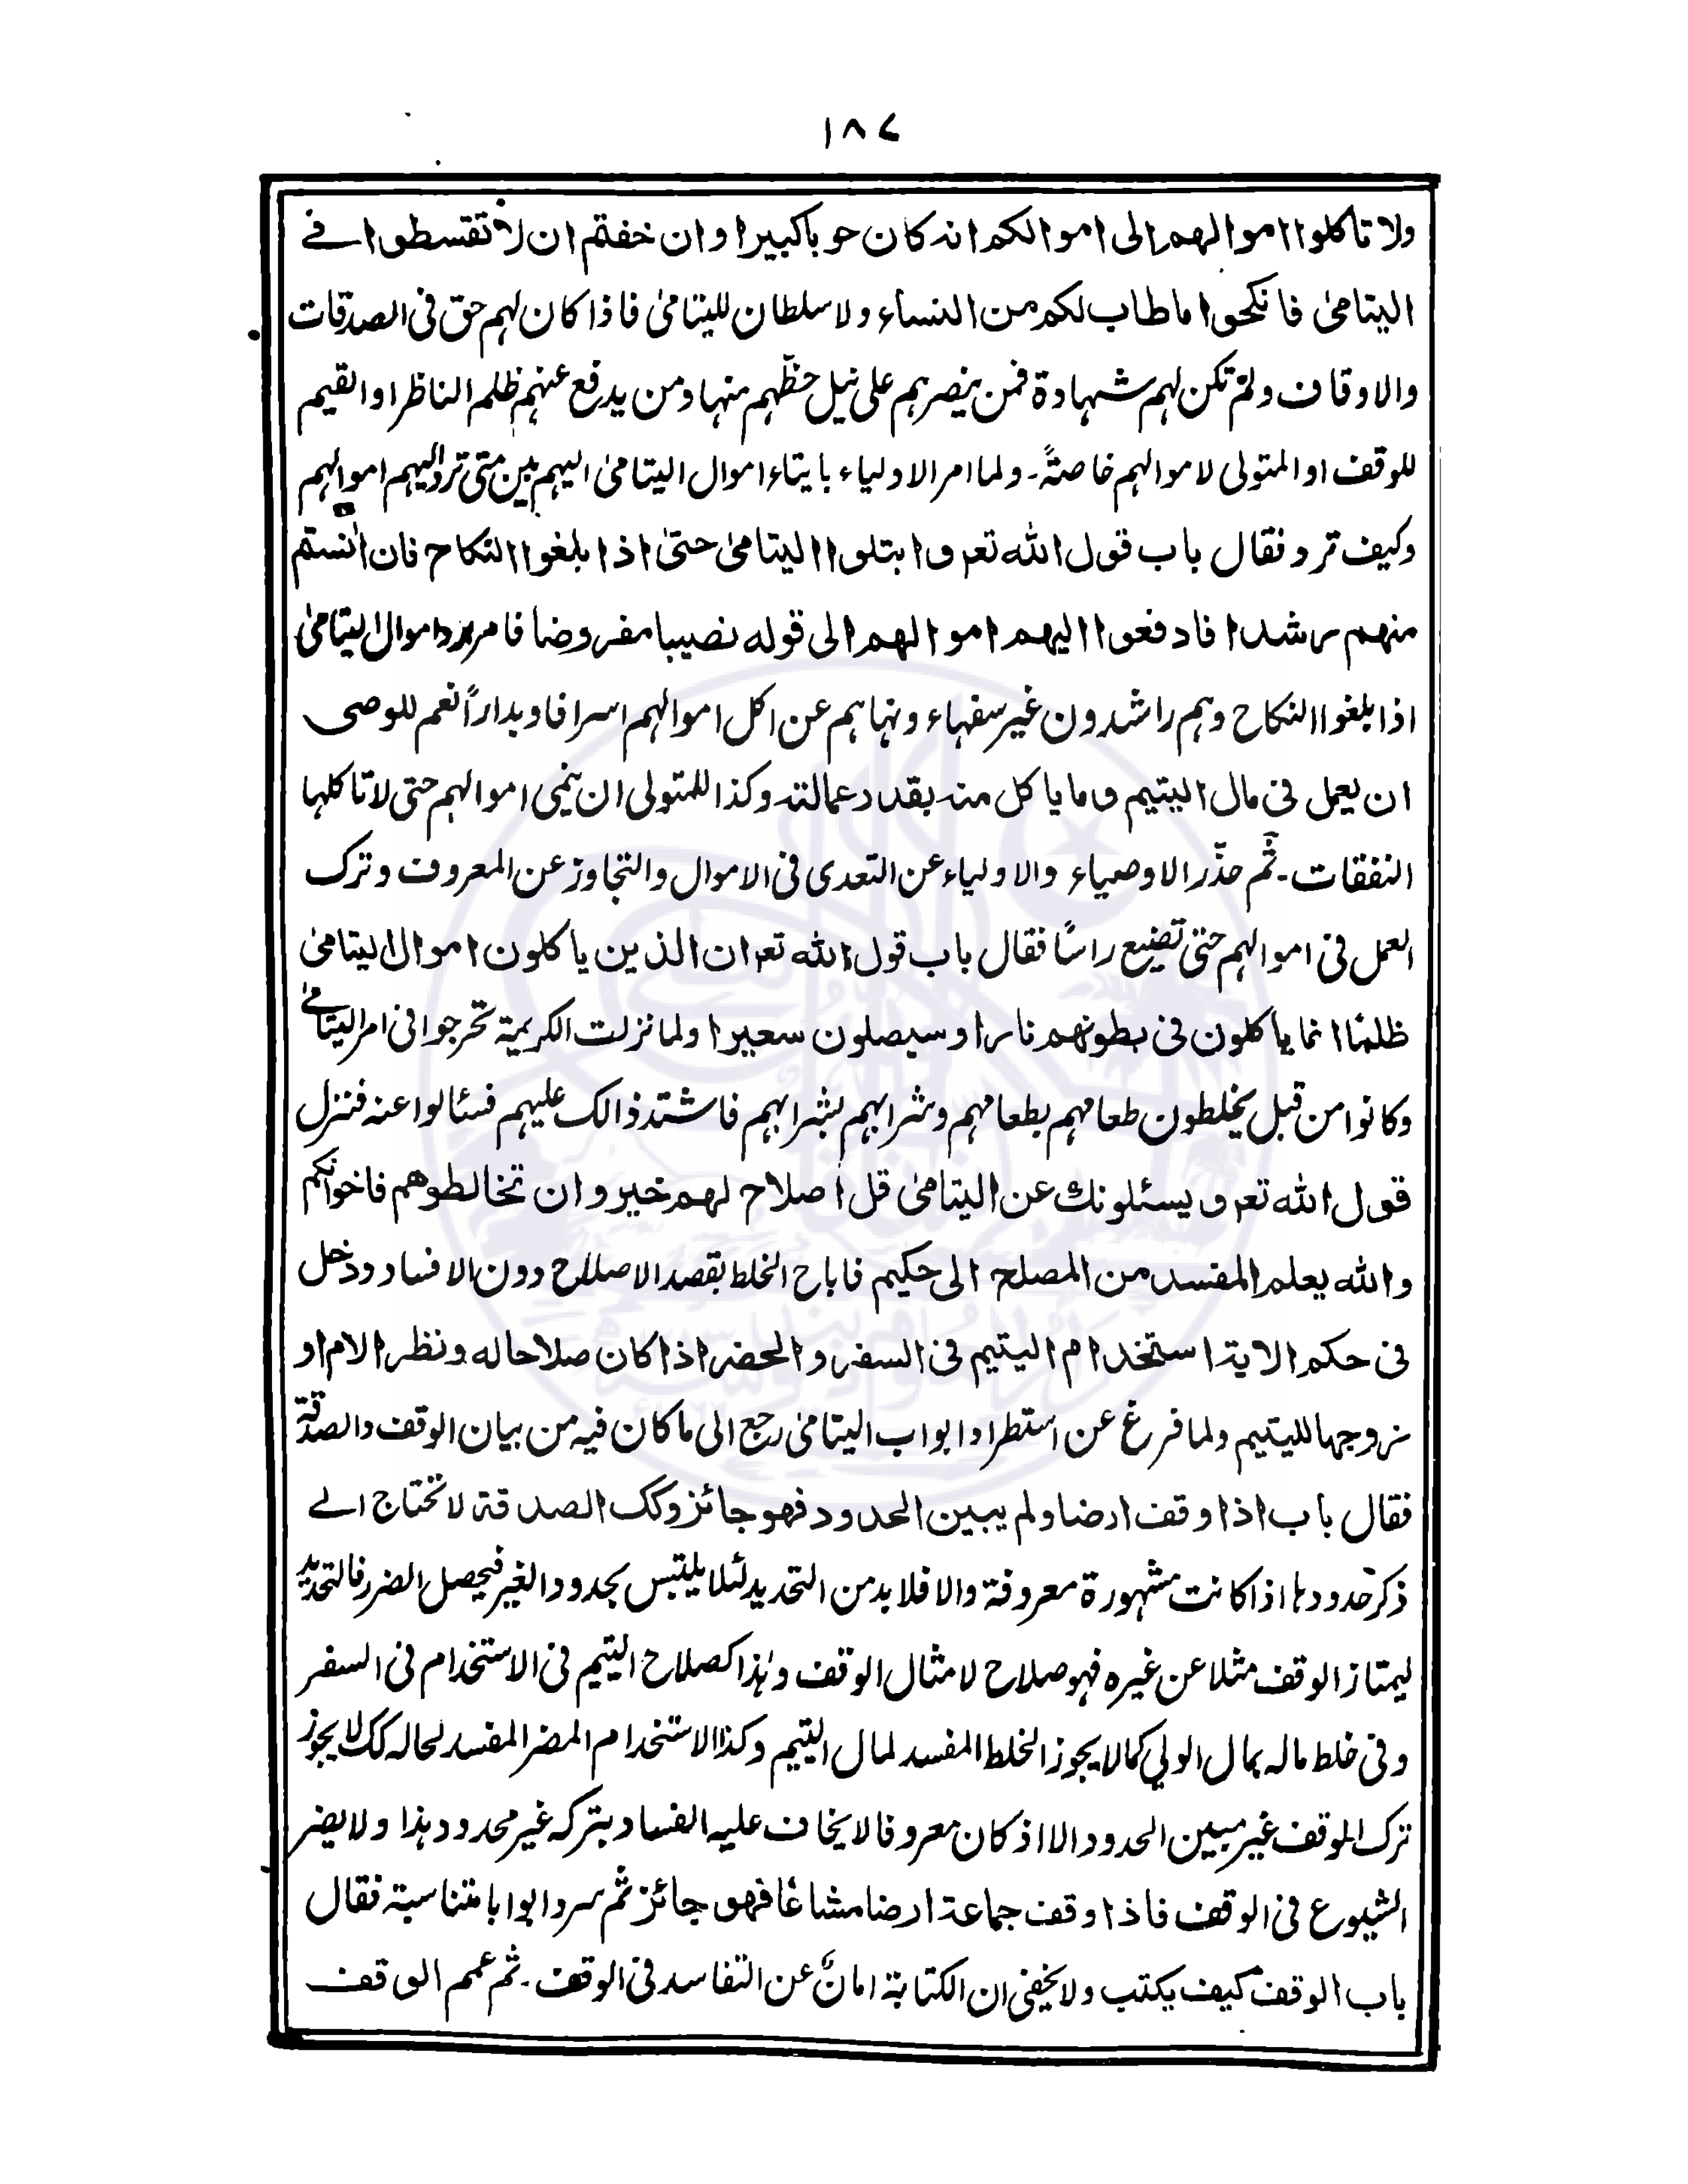 ١٨٧
ولا تاكلوا اموالهم الى اموالكم انه كان حوبا كبيرا وان خفتم ان لا تقسطوا في
اليتامىٰ فانكحوا ما طاب لكم من النساء ولا سلطان لليتامىٰ فاذا كان لهم حق فى الصدقات
والاوقاف ولم تكن لهم شهادة فمن ينصرهم على نيل حظّهم منها ومن يدفع عنهم ظلم الناظر او القيم
للوقف او المتولى لاموالهم خاصةً۔ ولما امر الاولياء بايتاء اموال اليتامىٰ اليهم بين متى ترد اليهم اموالهم
وكيف ترد فقال باب قول الله تعم وابتلوا اليتامىٰ حتىٰ اذا بلغوا النكاح فان اٰنستم
منهم رشدا فادفعوا اليهم اموالهم الى قوله نصيبا مفروضا فامر برد اموال اليتامىٰ
اذا بلغوا النكاح وهم راشدون غير سفهاء ونهاهم عن اكل اموالهم اسرافا وبداراً نعم للوصى
ان يعمل فى مال اليتيم وما ياكل منه بقدر عمالته وكذا للمتولى ان ينمى اموالهم حتى لا تاكلها
النفقات۔ ثم حذّر الاوصياء والاولياء عن التعدى فى الاموال والتجاوز عن المعروف وترك
العمل فى اموالهم حتى تضيع راسًا فقال باب قول الله تعم ان الذين ياكلون اموال اليتامىٰ
ظلمًا انما ياكلون فى بطونهم نارا وسيصلون سعيرا ولما نزلت الكريمة تحرجوا فى امر اليتامىٰ
وكانوا من قبل يخلطون طعامهم بطعامهم وشرابهم بشرابهم فاشتد ذالك عليهم فسئالوا عنه فنزل
قول الله تعم و يسئلونك عن اليتامىٰ قل اصلاح لهم خير وان تخالطوهم فاخوانكم
والله يعلم المفسد من المصلح الى حكيم فاباح الخلط بقصد الاصلاح دون الافساد ودخل
فى حكم الاية استخدام اليتيم فى السفر والحضر اذا كان صلاحا له ونظر الام او
زوجها لليتيم ولما فرغ عن استطراد ابواب اليتامىٰ رجع الى ما كان فيه من بيان الوقف والصدقة
فقال باب اذا وقف ارضا ولم يبين الحدود فهو جائز وكك الصدقة لا تحتاج الے
ذكر حدودها اذا كانت مشهورة معروفة والا فلا بد من التحديد لئلا يلتبس بحدود الغير فيحصل الضرر فالتحديد
ليمتاز الوقف مثلا عن غيره فهو صلاح لامثال الوقف وهذا كصلاح اليتيم فى الاستخدام فى السفر
وفى خلط ماله بمال الولي كما لا يجوز الخلط المفسد لمال اليتيم وكذا الاستخدام المضر المفسد لحاله كك لا يجوز
ترك الموقف غير مبين الحدود الا اذ كان معروفا لا يخاف عليه الفساد بتركه غير محدود هذا ولا يضر
الشيوع فى الوقف فاذا وقف جماعة ارضا مشاعًا فهو جائز ثم سرد ابوابا متناسبة فقال
باب الوقف كيف يكتب ولا يخفى ان الكتابة امانٌ عن التفاسد فى الوقف۔ ثم عمم الوقف